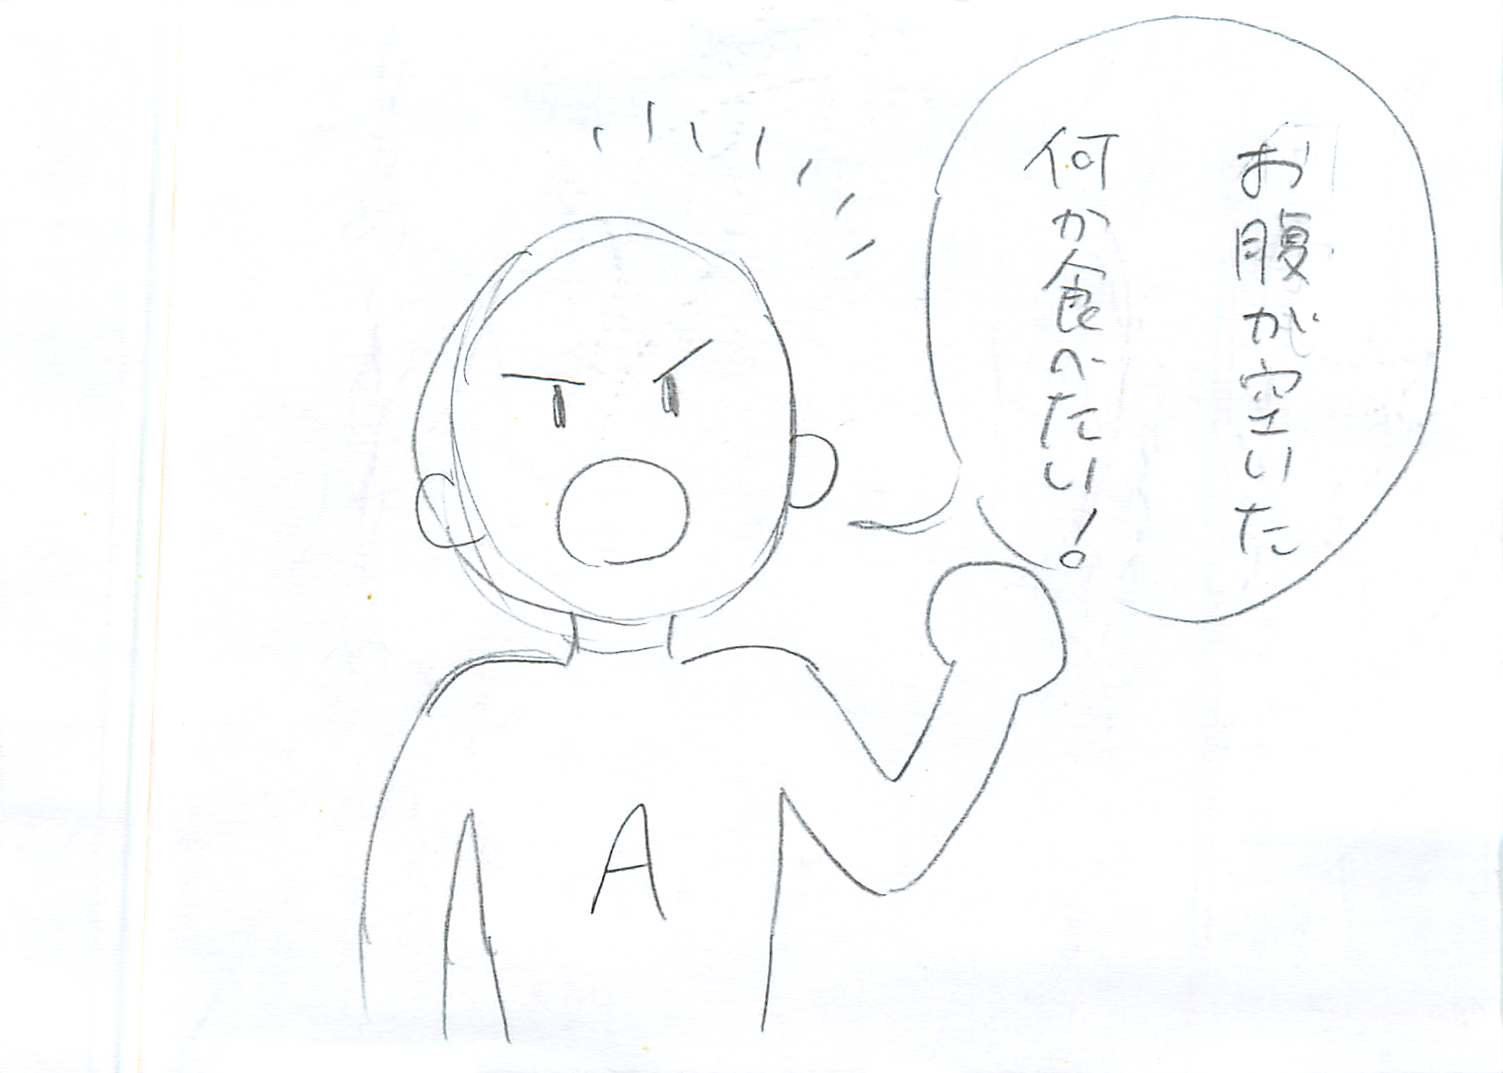 お腹が空いた
何か食べたい!
A